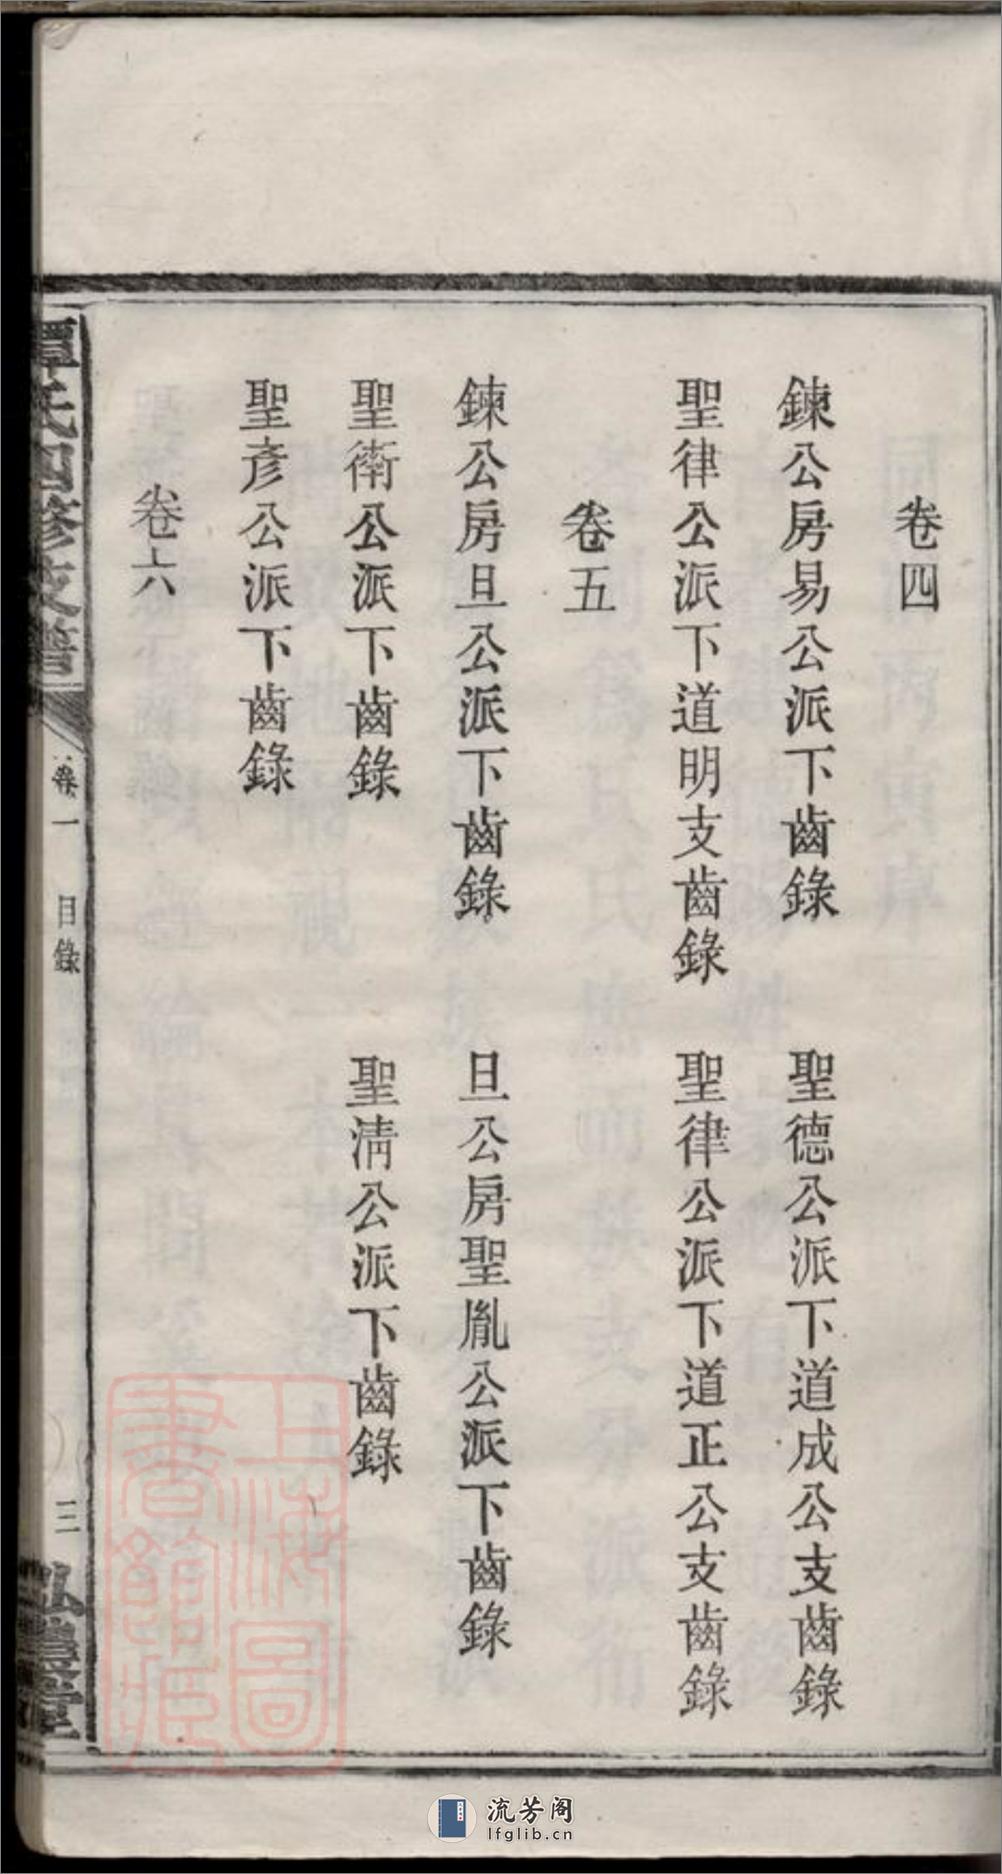 卷四
鍊公房易公派下齒錄　聖德公派下道成公支齒錄
聖律公派下道明支齒錄　聖律公派下道正公支齒錄
卷五
鍊公房旦公派下齒錄　旦公房聖胤公派下齒錄
聖衛公派下齒錄　聖清公派下齒錄
聖彥公派下齒錄
卷六
氏四修支譜　卷一　目錄　三
上海圖書館藏
流芳阁
lfglib.cn